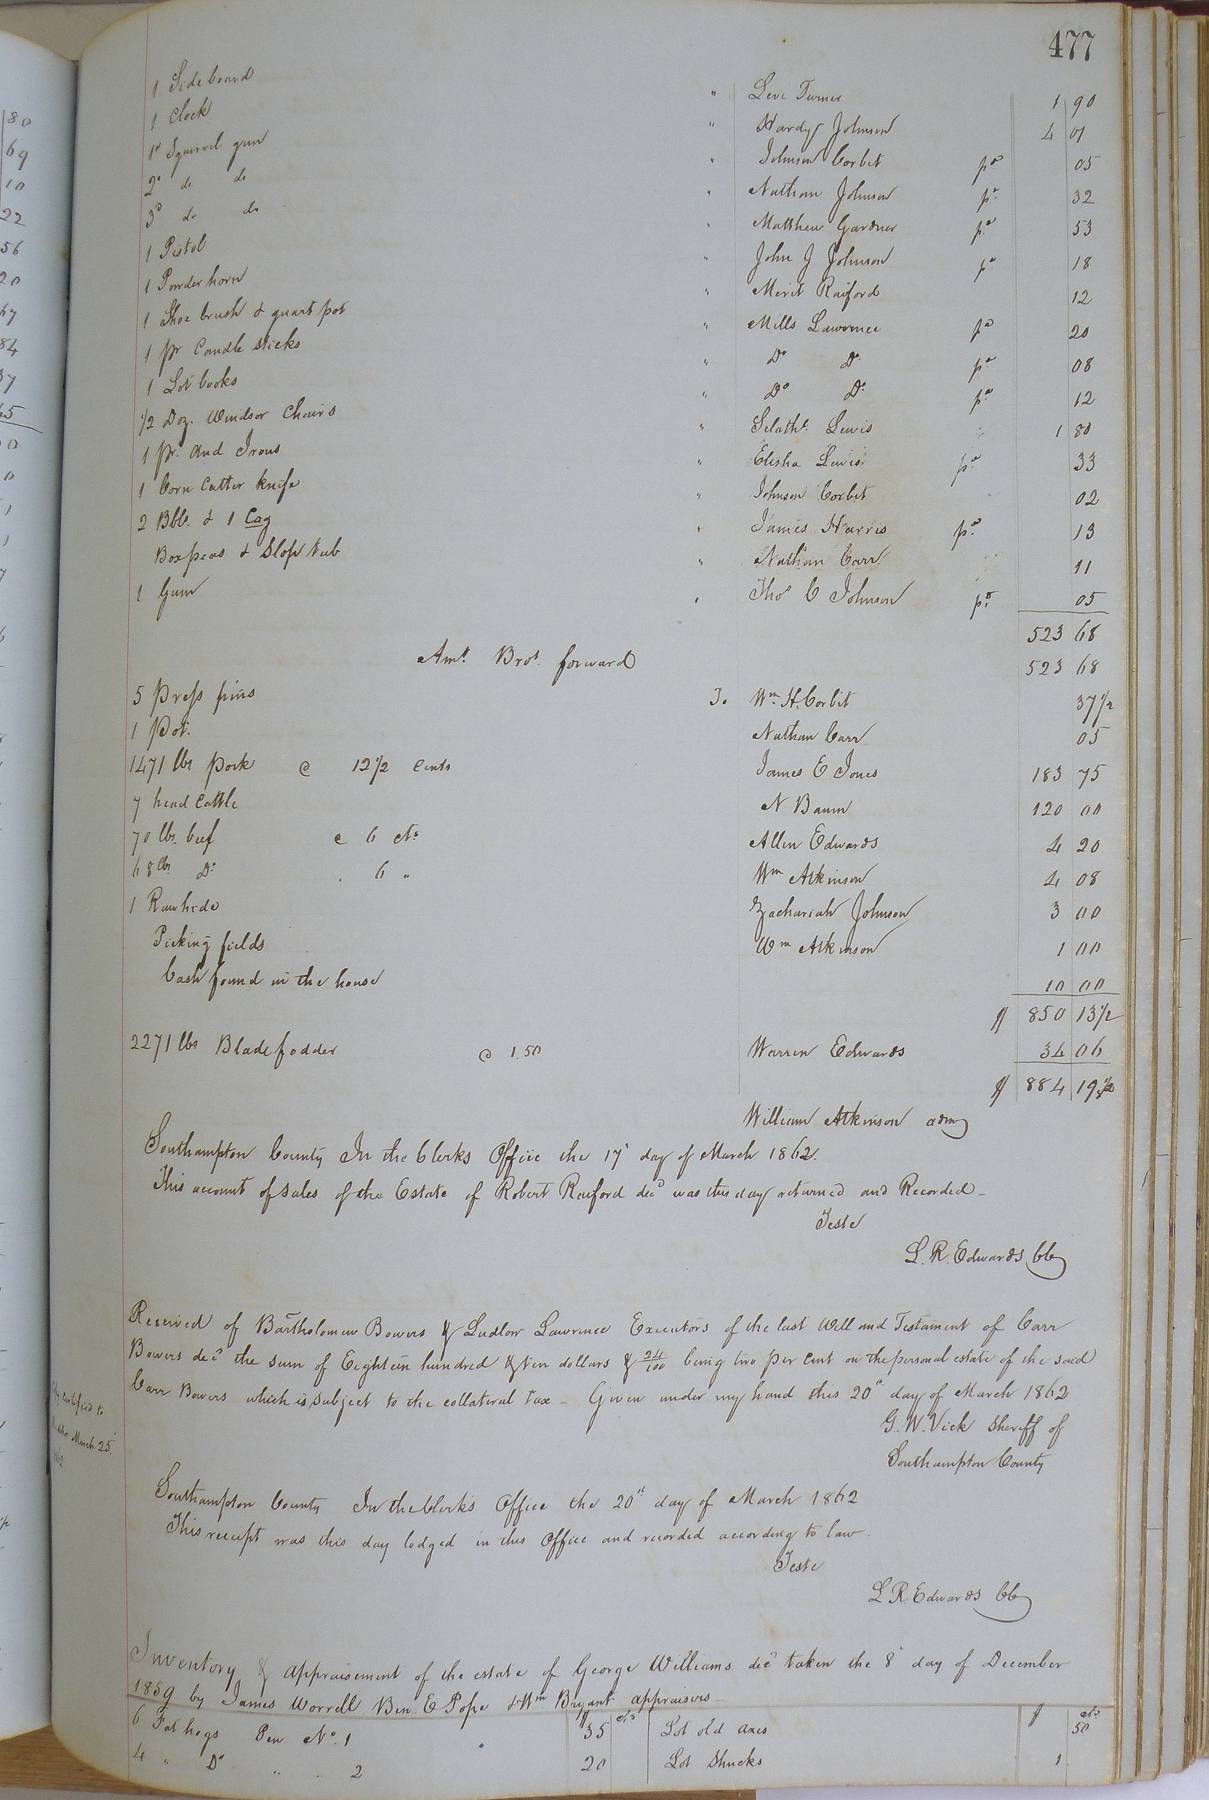 477
1 Sideboard " Levi Turner 1 90
1 Clock " Hardy Johnson 4 01
1st Squirrel gun " Johnson Corbit pd 05
2d do do " Nathan Johnson pd 32
3d do do " Matthew Gardner pd 53
1 Pistol " John J Johnson pd 18
1 Powder horn " Merit Raiford 12
1 Shoe brush & quart pot " Mills Lawrence pd 20
1 pr Candle sticks " Do Do pd 08
1 Lot books " Do Do pd 12
1/2 Doz. Windsor Chairs " Lewis 1 80
1 pr. And Irons " Elisha Lewis pd 33
1 Corn Cutter knife " Johnson Corbit 02
2 Bbls. & 1 Cag " James Harris pd 13
Box peas & Slop tub " Nathan Carr 11
1 Gum " Thos C Johnson pd 05
523 68
Amt. Brot. forward 523 68
5 Press pins To Wm. H. Corbit 37 1/2
1 Pot. Nathan Carr 05
1471 lbs pork @ 12 1/2 Cents James E Jones 183 75
7 head Cattle N Baum 120 00
70 lbs. beef @ 6 cts Allen Edwards 4 20
68 lbs Do " 6 " Wm Atkinson 4 08
1 Rawhide Zachariah Johnson 3 00
Picking fields Wm Atkinson 1 00
Cash found in the house 10 00
$ 850 13 1/2
2271 lbs Blade fodder @ 1.50 Warren Edwards 34 06
$ 884 19 1/2
William Atkinson admr
Southampton County In the Clerks Office the 17 day of March 1862.
This account of sales of the Estate of Robert Raiford decd was this day returned and Recorded
Teste
L. R. Edwards CC
Received of Bartholomew Bowers & Ludlow Lawrence Executors of the last Will and Testament of Carr
Bowers decd the sum of Eighteen hundred & ten dollars & 24/100 being two per cent on the personal estate of the said
Carr Bowers which is subject to the collateral tax - Given under my hand this 20th day of March 1862
G. W. Vick Sheriff of
Southampton County
March 25
Southampton County In the Clerk's Office the 20th day of March 1862
This receipt was this day lodged in this Office and recorded according to law.
Teste
L R Edwards CC
Inventory & appraisement of the estate of George Williams decd taken the 8 day of December
1859 by James Worrell Ben. E Pope & Wm Bryant appraisers
$ cts $ cts
6 Fat hogs Pen No. 1 35 Lot old axes 50
4 " Do " " 2 20 Lot Shucks 1